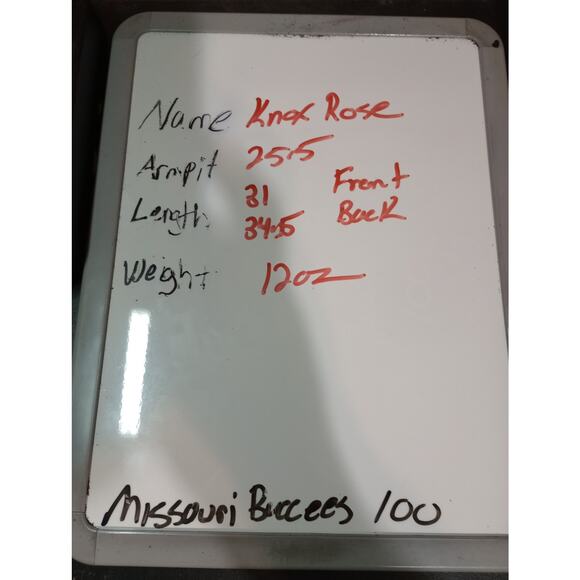 Name Knox Rose
Armpit 25.5
Length 31 Front
34.5 Back
Weight 12oz
Missouri Buccees 100